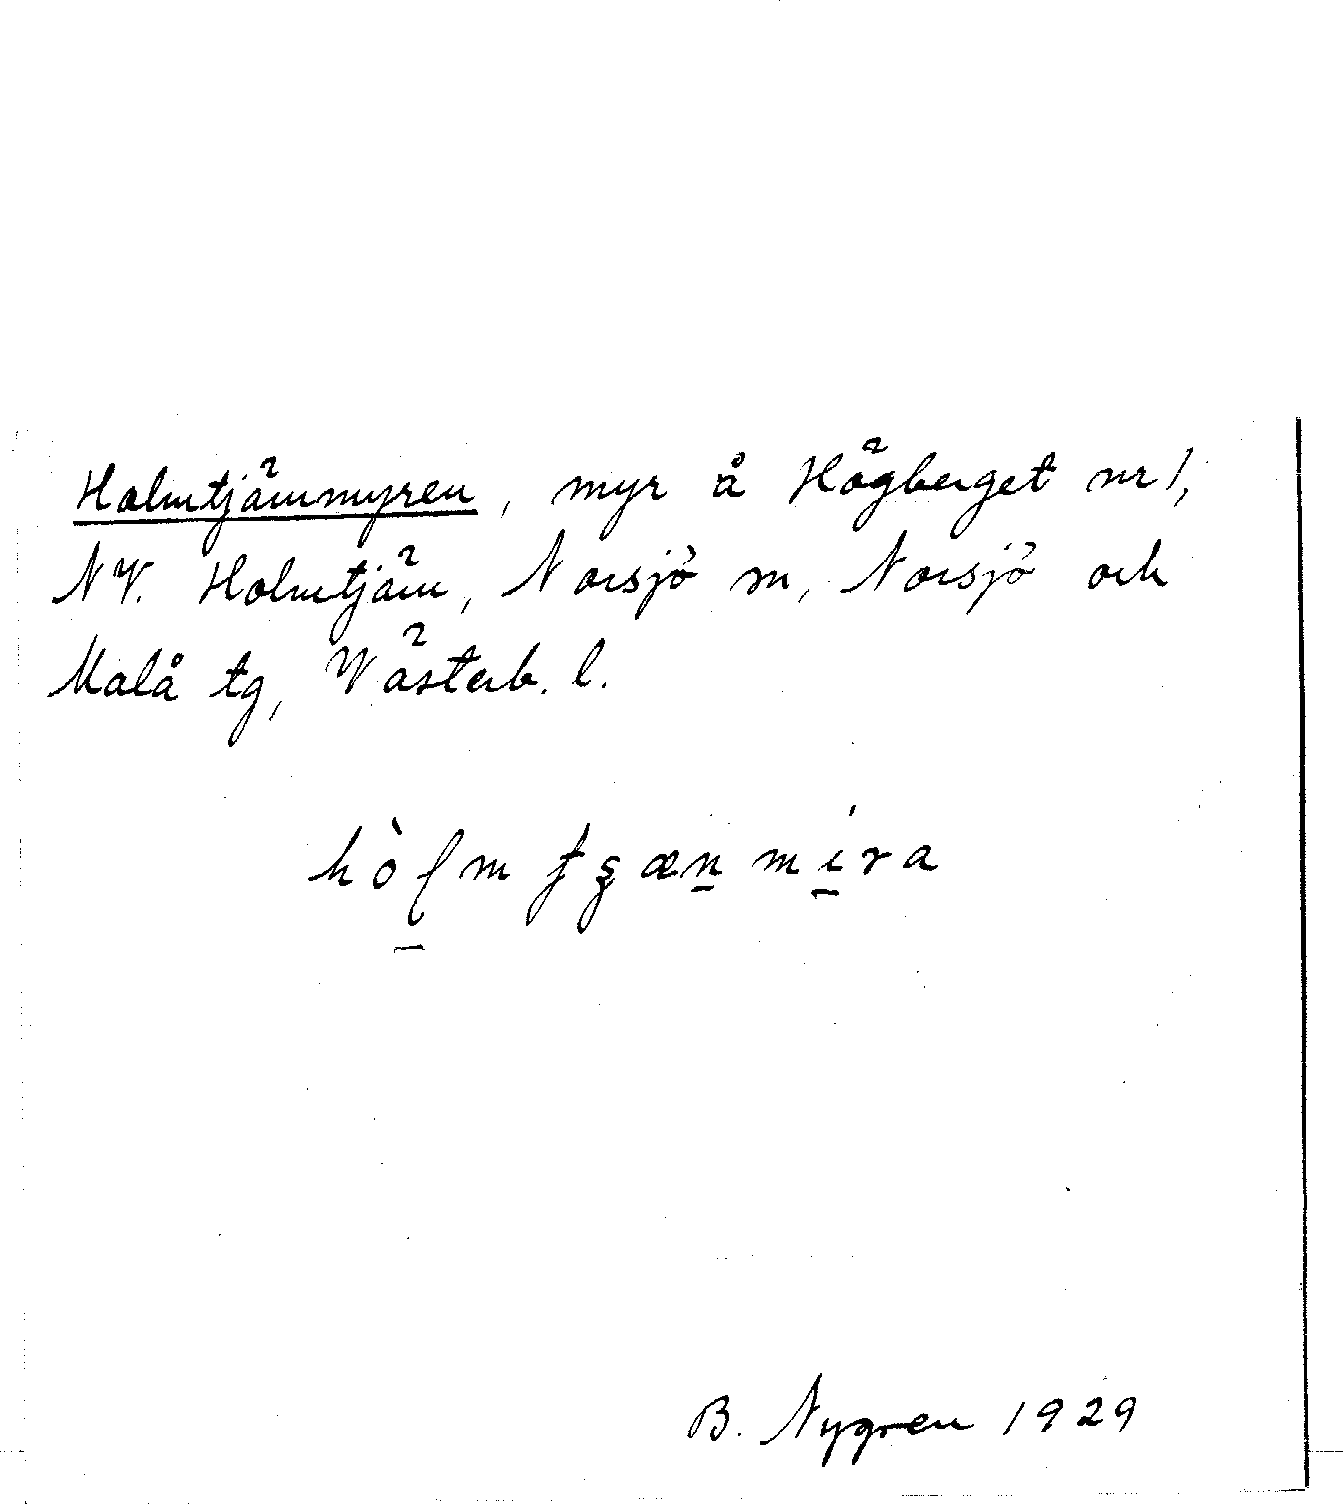 Holmtjärnmyren, myr å Högberget nr 1,
NV. Holmtjärn, Norsjö sn, Norsjö och
Malå tg, Västerb. l.
B. Nygren 1929